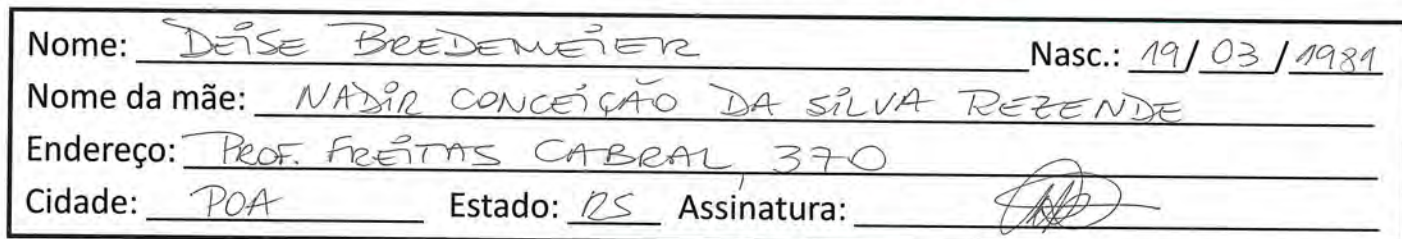 Nome: DEISE BREDEMEIER Nasc.: 19/03/1981
Nome da mãe: NADIR CONCEIÇÃO DA SILVA REZENDE
Endereço: PROF. FREITAS CABRAL, 370
Cidade: POA Estado: RS Assinatura: